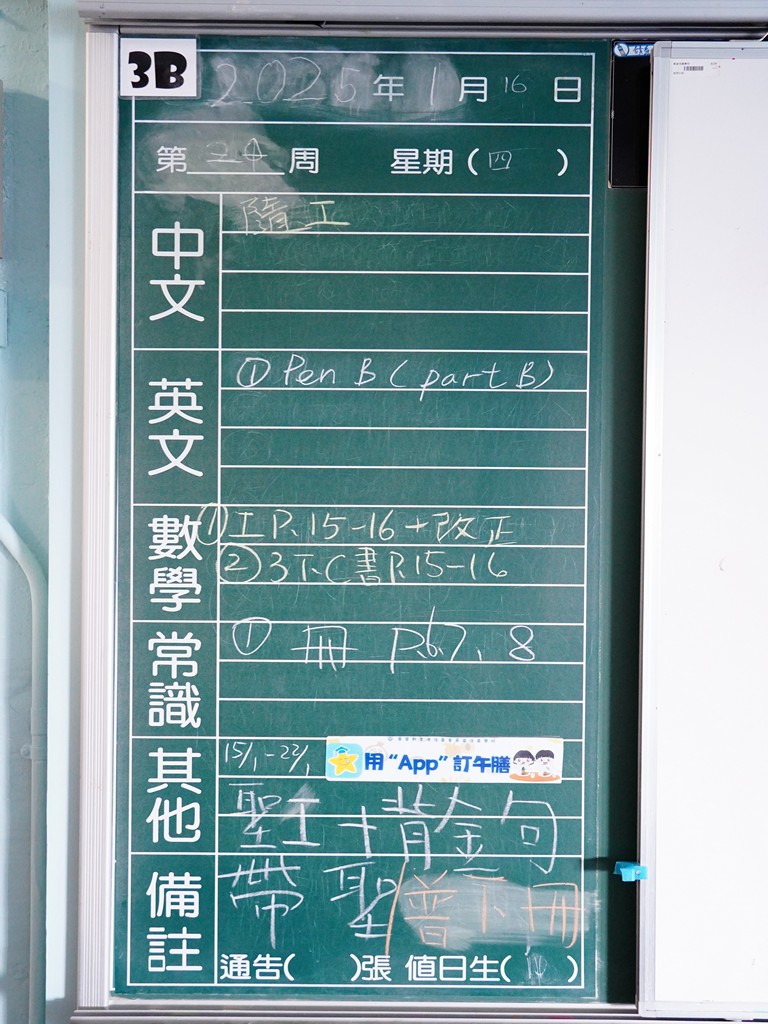 3B
2025年1月16日
第20周 星期(四)
中文
隨工
英文
① Pen B (part B)
數學
① 工 P. 15-16 + 改正
② 3下C書 P.15-16
常識
① 冊 P.6.7、8
其他
15/1-22/1 用“App”訂午膳
聖工+背金句
備註
帶 聖 普下冊
通告( )張 值日生( )